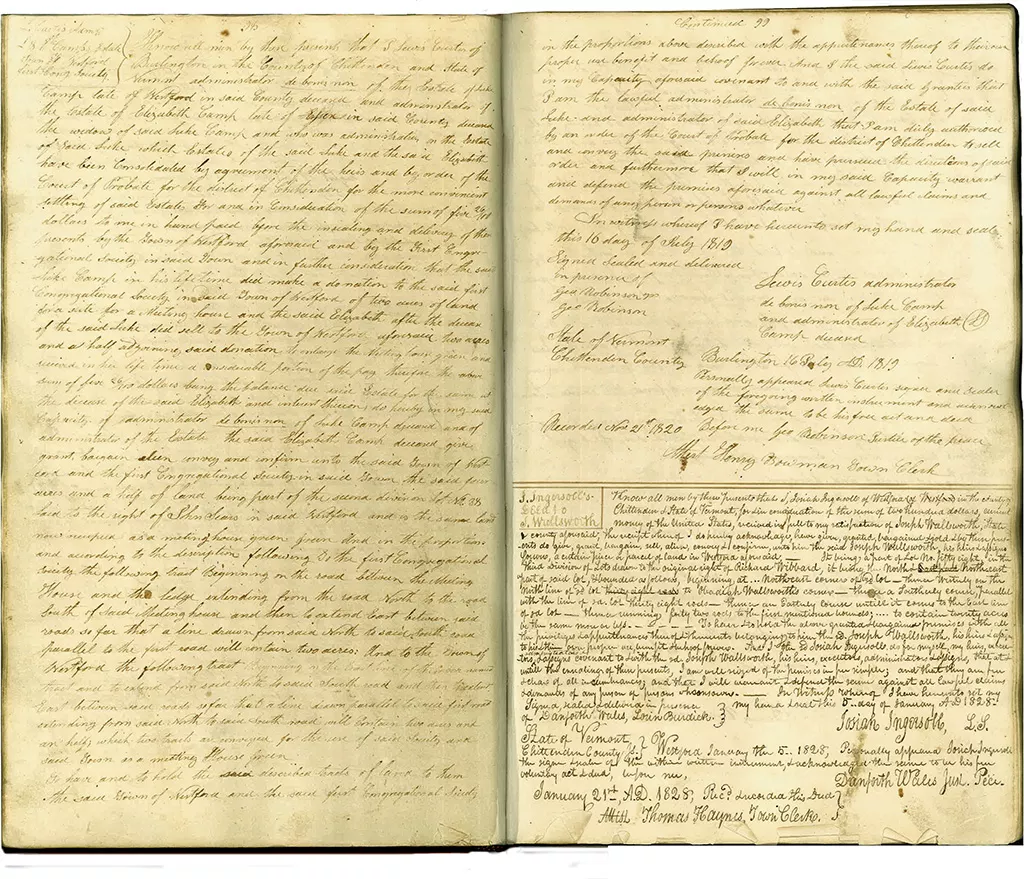 98
Know all men by these presents that I Lewis Curtis of
Burlington in the County of Chittenden and State of
Vermont administrator de bonis non of the Estate of Luke
Camp late of Westford in said County deceased and administrator of
the Estate of Elizabeth Camp late of Essex in said County deceased
the widow of said Luke Camp and who was administratrix on the Estate
of said Luke which Estates of the said Luke and the said Elizabeth
have been Consolidated by agreement of the heirs and by order of the
Court of Probate for the district of Chittenden for the more convenient
settling of said Estate, For and in Consideration of the sum of five
dollars to me in hand paid before the ensealing and delivery of these
presents by the Town of Westford aforesaid and by the First Congre-
gational Society in said Town and in further consideration that the said
Luke Camp in his life time did make a donation to the said first
Congregational Society in said Town of Westford of two acres of land
for a site for a Meeting house and the said Elizabeth after the decease
of the said Luke did sell to the Town of Westford aforesaid two acres
and a half adjoining said donation to enlarge the Meeting house green and
received in her life time a considerable portion of the pay therefor the above
sum of five dollars being the balance due said Estate for the same at
the decease of the said Elizabeth and interest thereon, do hereby in my said
Capacity of administrator de bonis non of Luke Camp deceased and of
administrator of the Estate the said Elizabeth Camp deceased give
grant, bargain convey and confirm unto the said Town of West-
ford and the first Congregational Society in said Town, the said four
acres and a half of land being part of the second division Lot No 28
laid to the right of John Sears in said Westford and is the same land
now occupied as a meeting house green And in the proportion
and according to the description following To the first Congregational
Society the following tract Beginning on the road between the Meeting
House and the ledge extending from the road North to the road
South of said Meeting house and then to extend East between said
roads so far that a line drawn from said North to said South road
parallel to the first road will contain two acres: And to the Town of
Westford the following tract
East between said roads so far that a line drawn parallel to said first
extending from said North to said South road will contain two acres and
an half, which two tracts are conveyed for the use of said Society and
said Town as a meeting House green
To have and to hold the said described tracts of land to them
the said Town of Westford and the said first Congregational Society
Continued 99
in the proportions above described with the appurtenances thereof to their own
proper use benefit and behoof forever And I the said Lewis Curtis do
in my Capacity aforesaid covenant to and with the said grantees that
I am the lawful administrator de bonis non of the Estate of said
Luke and administrator of said Elizabeth that I am duly authorized
by an order of the Court of Probate for the district of Chittenden to sell
and convey the said premises and have pursued the directions of said
order and furthermore that I will in my said Capacity warrant
and defend the premises aforesaid against all lawful claims and
demands of any person or persons whatever
In witness whereof I have hereunto set my hand and seal
this 16 day of July 1819
Signed Sealed and delivered
in presence of
Geo Robinson
Geo Robinson
Lewis Curtis administrator
de bonis non of Luke Camp
and administrator of Elizabeth
Camp deceased
State of Vermont
Chittenden County
Burlington 16 July AD. 1819
Personally appeared Lewis Curtis signer and sealer
of the foregoing written instrument and acknowl
edged the same to be his free act and deed
Recorded Nov 21st 1820 Before me Geo Robinson Justice of the peace
Attest Henry Bowman Town Clerk
J. Ingersoll's
Deed to
J. Wallsworth
Know all men by these presents that I, Josiah Ingersoll of Westford in the County
Chittenden & State of Vermont, for & in consideration of the sum of two hundred dollars, current
money of the United States, received in full to my satisfaction of Joseph Wallsworth, State
& county aforesaid, the receipt whereof I do hereby acknowledge, have given, granted, bargained & sold & by these pres-
ents do give, grant, bargain, sell, alien, convey & confirm, unto him the said Joseph Wallsworth, his heirs & assigns
forever, a certain piece or parcel of land in Westford aforesaid, It being a part of Lot No. fifty eight,
Third Division of Lots drawn to the original right of Richard Wibbard, North
part of said lot, & bounded as follows, beginning at Northeast corner of sd lot thence Westerly on the
North line of sd lot to Obadiah Wallsworth's corner thence a Southerly course, parallel
with the line of sd lot thirty eight rods thence an Easterly course untill it comes to the East line
of sd lot thence running forty two rods to the first mentioned bounds; to contain twenty acres
be the same more or less. To have & to hold the above granted & bargained premises with all
the privileges & appurtenances thereof & thereunto belonging to him the sd Joseph Wallsworth, his heirs & assigns
In Witness whereof I have hereunto set my
my hand & seal this 5. day of January A.D 1828.
Signed, sealed & delivered in presence
of Danforth Wales, Lorin Burdick.
Josiah Ingersoll, L.S.
State of Vermont,
Chittenden County, ss. Westford January the 5. 1828, Personally appeared Josiah Ingersoll
the signer & sealer of the within written instrument, & acknowledged the same to be his free
voluntary act & deed, before me,
Danforth Wales Just. Pece.
January 21st, A.D. 1828, Rec'd & recorded this Deed
Attest Thomas Haynes, Town Clerk.